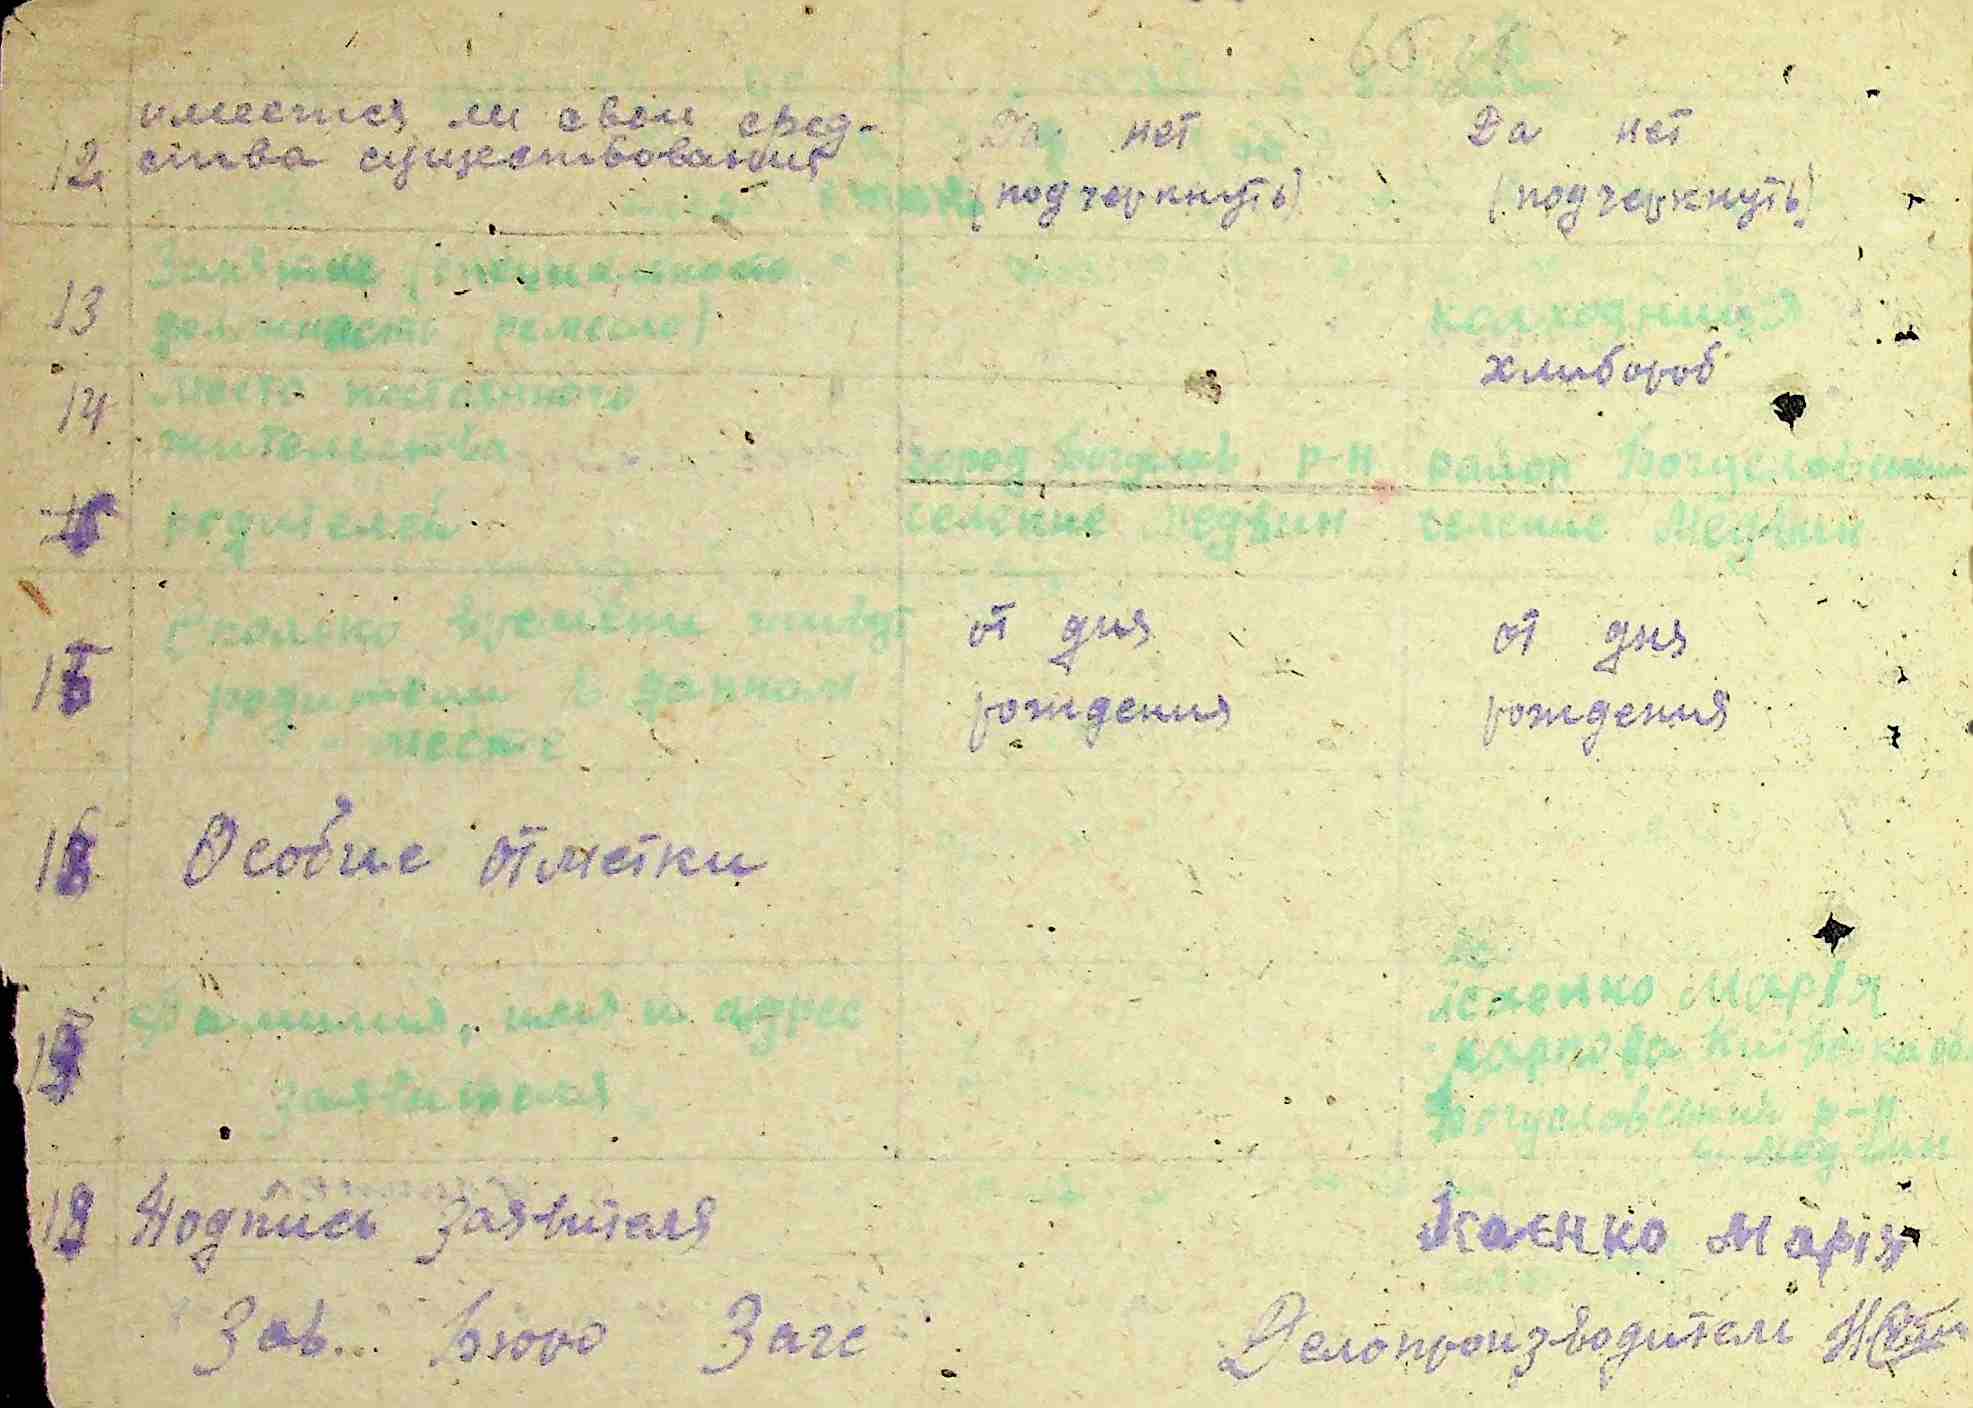 имеется ли свои сред-
12 ства существования
Да нет
(подчеркнуть)
Да нет
(подчеркнуть)
13 Занятие (специальность
должность ремесло)
колхозница
хлибороб
14 Место постоянного
жительства
родителей
город Богуслав р-н
селение Медвин
район Богуславський
селение Медвин
15 Сколько времени живут
родители в данном
месте
от дня
рождения
от дня
рождения
16 Особие отметки
17 Фамилия, имя и адрес
заявителя
Марія
Карповна Київська об
Богуславський р-н
с. Медвин
18 Подпись Заявителя
Марія
Зав... Бюро Загс
Делопроизводитель